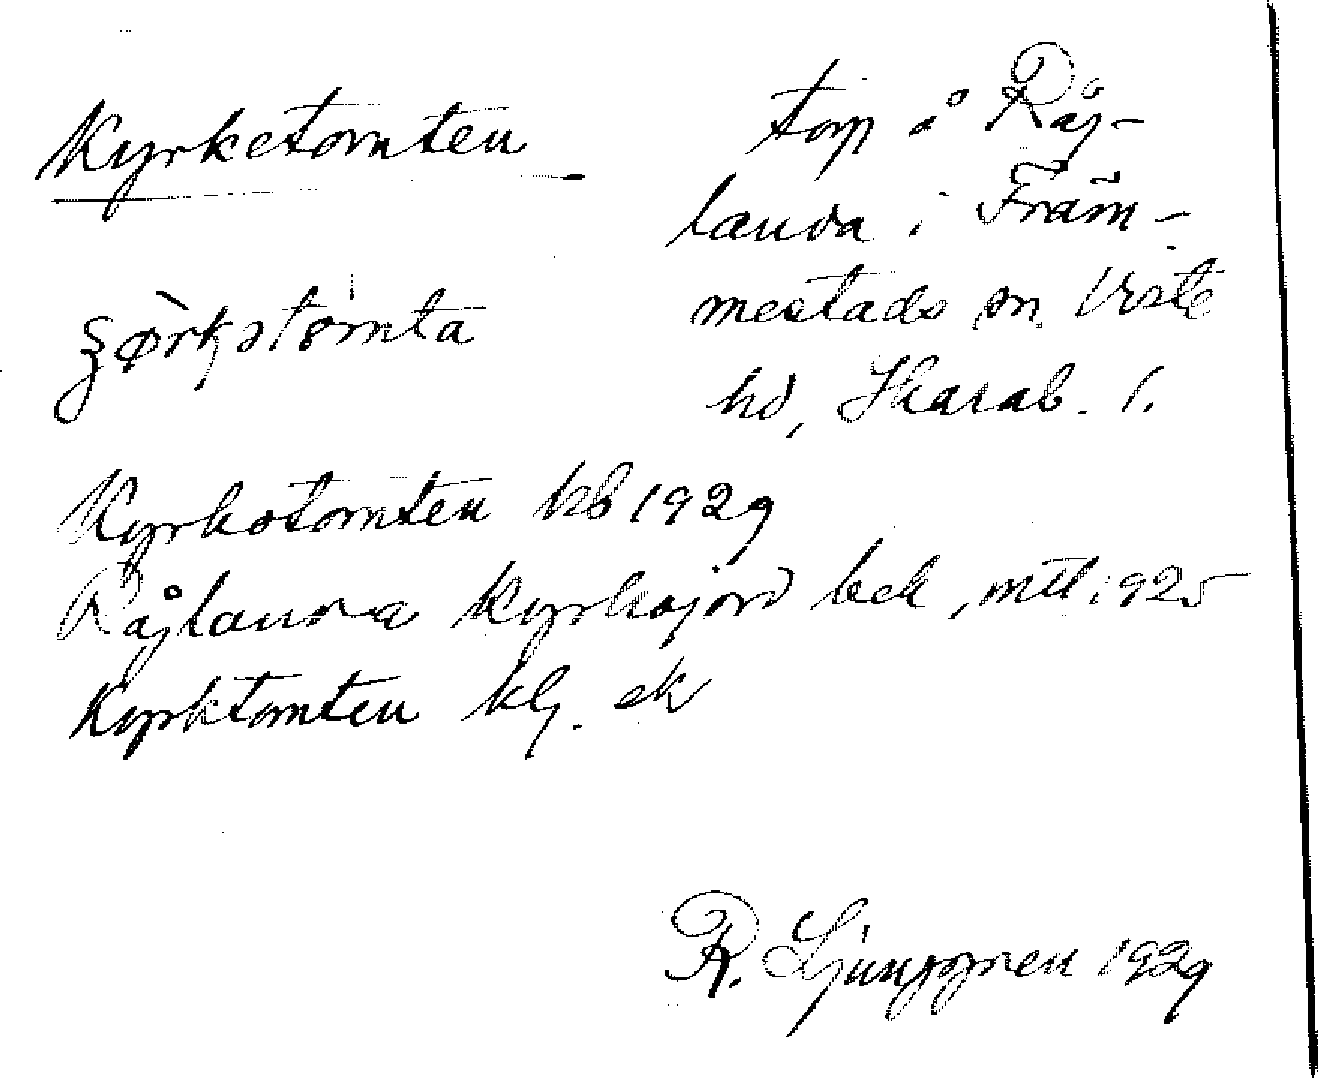 Kyrketomten
torp å Råj-
landa i Främ-
mestads sn Viste
hd, Skarab. l.
Kyrkotomten kb 1929
Råjlanda kyrkojord bek, mtl 1925
Kyrktomten klj. ek
R. Ljunggren 1929